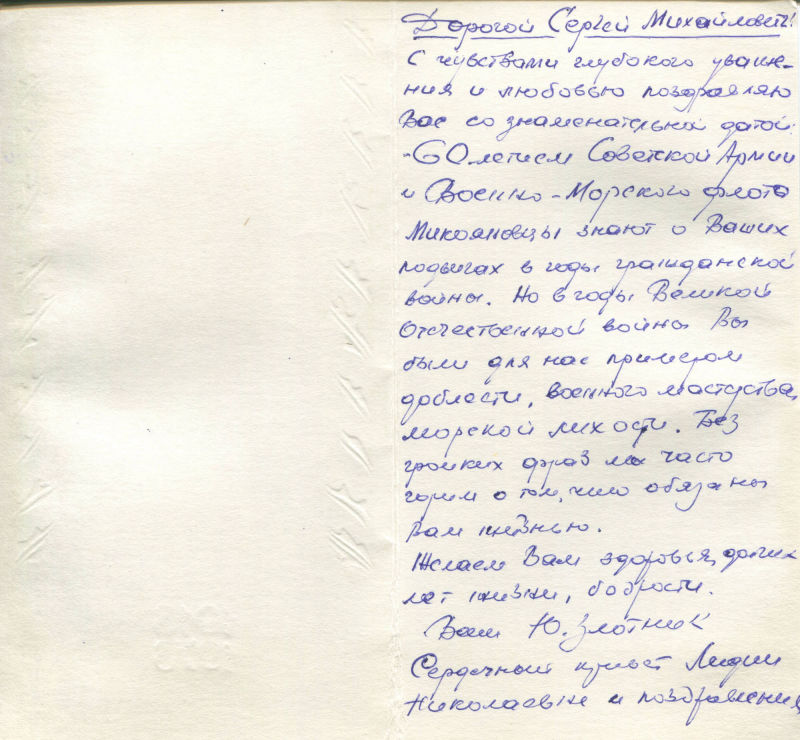 Дорогой Сергей Михайлович!
С чувствами глубокого уваже-
ния и любовью поздравляю
Вас со знаменательной датой:
-60летием Советской Армии
и Военно-Морского флота
Микояновцы знают о Ваших
подвигах в годы гражданской
войны. Но в годы Великой
Отечественной войны Вы
были для нас примером
доблести, военного мастерства,
морской лихости. Без
громких фраз мы часто
горим о том, что обязаны
Вам жизнью.
Желаем Вам здоровья, долгих
лет жизни, бодрости.
Ваш Ю. Злотник
Сердечный привет Лидии
Николаевне и поздравления